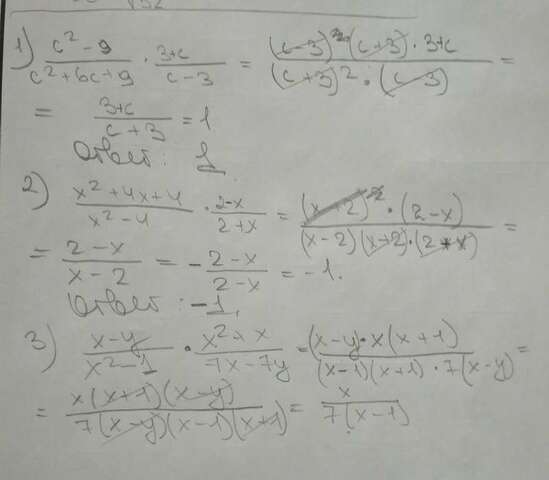 1) (c² - 9)/(c² + 6c + 9) · (3+c)/(c - 3) = ((c-3)² · (c+3) · 3+c)/((c+3)² · (c-3)) =
= (3+c)/(c+3) = 1
Ответ: 1.
2) (x² + 4x + 4)/(x² - 4) · (2-x)/(2+x) = ((x+2)² · (2-x))/((x-2)(x+2) · (2+x)) =
= (2-x)/(x-2) = - (2-x)/(2-x) = -1.
Ответ: -1.
3) (x-y)/(x²-1) · (x²+x)/(7x-7y) = ((x-y) · x(x+1))/((x-1)(x+1) · 7(x-y)) =
= (x(x+1)(x-y))/(7(x-y)(x-1)(x+1)) = x/(7(x-1))